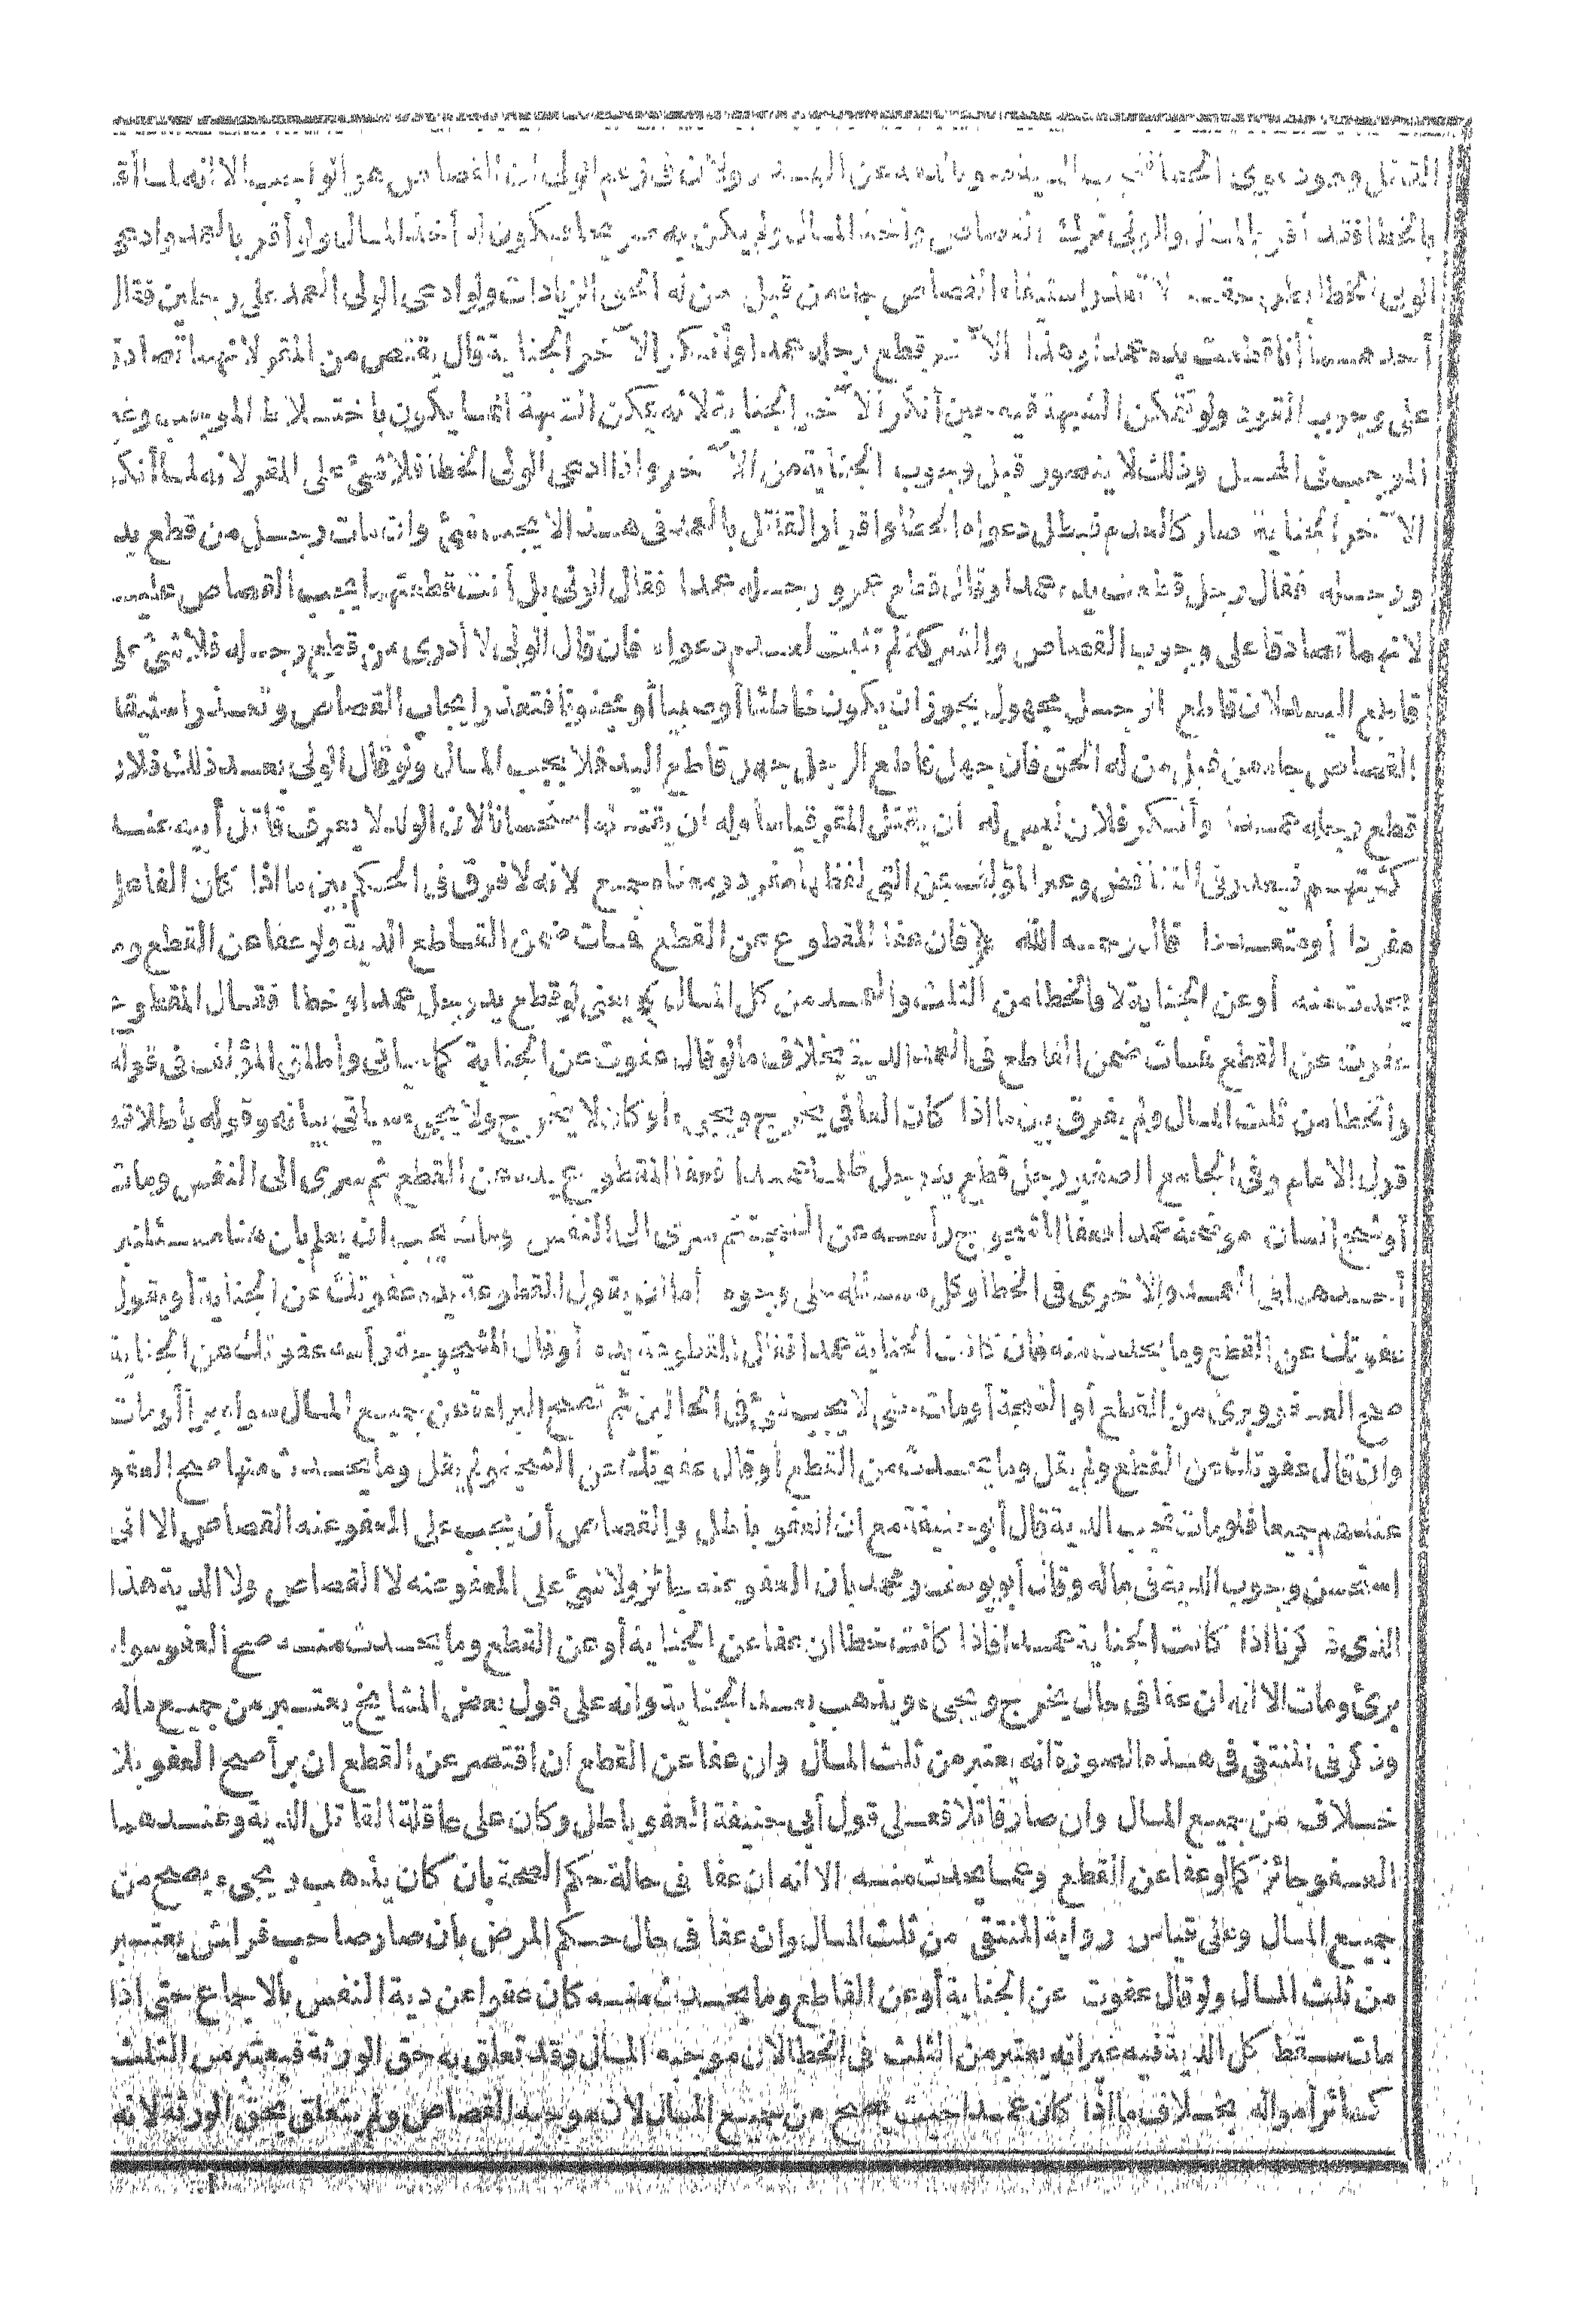 القتل وجود دعوى الخطا تجب الدية وبالدم عن العمد ولان في زعم الولى ان القصاص هو الواجب الا انه لما أق
بالخطا فقد أقر بالمال والولى ترك القصاص وأخذ المال ولم يكن به مدعيا فيكون له أخذ المال ولو أقر بالعمد وادعى
الولى الخطا بطل حقه لا تعذر استيفاء القصاص جاء من قبل من له الحق الزيادات ولو ادعى الولى العمد على رجلين فقال
أحدهما أنا قطعت يده عمدا وهذا الآخر قطع رجله عمدا وأنكر الآخر الجناية قال يقتص من المقر لانهما تصادقا
على وجوب القود ولو تمكن الشبهة فيه حين أنكر الآخر الجناية لانه يمكن الشبهة انما يكون باختلاط الموجب وغير
الموجب في المحل وذلك لا يتصور قبل وجوب الجناية من الآخر واذا ادعى الولى الخطا فلا شئ على المقر لانه لما أنكر
الآخر الجناية صار كالعدم فبطل دعواه الخطأ واقرار القاتل بالعمد في هذا لا يجب شئ وان مات رجل من قطع يد
ورجله فقال رجل قطعت يده عمدا وقال قطع عمرو رجله عمدا فقال الولى بل أنت قطعتهما يجب القصاص عليه
لانهما تصادقا على وجوب القصاص والشركة لم تثبت لعدم دعواه فان قال الولى لا أدرى من قطع رجله فلا شئ على
قاطع اليد لان قاطع الرجل مجهول يجوز ان يكون خاطئا أو صبيا أو معتوها فتعذر ايجاب القصاص وتعذر استيفا
القصاص جاء من قبل من له الحق فان جهل قاطع الرجل جهل قاطع اليد فلا يجب المال ولو قال الولى بعد ذلك فلان
قطع رجله عمدا وأنكر فلان ليس له ان يقتل المقر قياسا وله ان يقتله استحسانا لان الولد لا يعرف قاتل أبيه عند
كثرتهم فيعذر في التناقض وعبر المؤلف عن التي لفظها مفرد ومعناه جمع لانه لا فرق في الحكم بين ما اذا كان الفاعل
مفردا أو متعددا قال رحمه الله ﴿فان عفا المقطوع عن القطع فمات ضمن القاطع الدية ولو عفا عن القطع وم
يحدث منه أو عن الجناية لا والخطا من الثلث والعمد من كل المال﴾ يعنى لو قطع يد رجل عمدا أو خطا فقال المقطوع
عفوت عن القطع فمات ضمن القاطع في العمد الدية بخلاف ما لو قال عفوت عن الجناية كما سيأتي وأطلق المؤلف في قوله
والخطا من ثلث المال ولم يفرق بين ما اذا كان العافى يخرج ويجىء أو كان لا يخرج ولا يجىء وسيأتي بيانه وقوله باطلاقه
قول الامام وفي الجامع الصغير رجل قطع يد رجل ظلما عمدا فعفا المقطوع يده عن القطع ثم سرى الى النفس ومات
أو شج انسان موضحة عمدا فعفا المشجوج رأسه عن الشجة ثم سرى الى النفس ومات يجب ان يعلم بان هنا مسئلتين
أحدهما في العمد والاخرى في الخطأ وكل مسئلة على وجوه اما ان يقول المقطوعة يده عفوتك عن الجناية أو يقول
عفوتك عن القطع وما يحدث منه فان كانت الجناية عمدا فقال المقطوعة يده أو قال المشجوجة رأسه عفوتك عن الجناية
صح العفو وبرئ من القطع أو الشجة أو مات حتى لا يجب شئ في الحالين ثم تصح البراءة عن جميع المال سواء برأ أو مات
وان قال عفوتك عن القطع ولم يقل وما يحدث من القطع أو قال عفوتك عن الشجة ولم يقل وما يحدث منها صح العفو
عندهم جميعا فلو مات تجب الدية قال أبو حنيفة مع ان العفو باطل والقصاص أن يجب على المعفو عنه القصاص الا انى
استحسن وجوب الدية في ماله وقال أبو يوسف ومحمد بان العفو عنه جائز ولا شئ على المعفو عنه لا القصاص ولا الدية هذا
الذى ذكرنا اذا كانت الجناية عمدا فاذا كانت خطا ان عفا عن الجناية أو عن القطع وما يحدث منه صح العفو سواء
برئ ومات الا انه ان عفا في حال يخرج ويجىء ويذهب بعد الجناية وانه على قول بعض المشايخ يعتبر من جميع ماله
وذكر في المنتقى في هذه الصورة انه يعتبر من ثلث المال وان عفا عن القطع ان اقتصر عن القطع ان برأ صح العفو بلا
خلاف من جميع المال وان صار قاتلا فعلى قول أبي حنيفة العفو باطل وكان على عاقلة القاتل الدية وعندهما
العفو جائز كما لو عفا عن القطع وعما يحدث منه الا انه ان عفا في حالة حكم الصحة بان كان يذهب ويجىء يصح من
جميع المال وعلى قياس رواية المنتقى من ثلث المال وان عفا في حال حكم المرض بان صار صاحب فراش يعتبر
من ثلث المال ولو قال عفوت عن الجناية أو عن القاطع وما يحدث منه كان عفوا عن دية النفس بالاجماع حتى اذا
مات سقط كل الدية فيه غير انه يعتبر من الثلث في الخطا لان موجبه المال وقد تعلق به حق الورثة فيعتبر من الثلث
كسائر أمواله بخلاف ما اذا كان عمدا حيث يصح من جميع المال لان موجبه القصاص ولم يتعلق بحق الورثة لانه